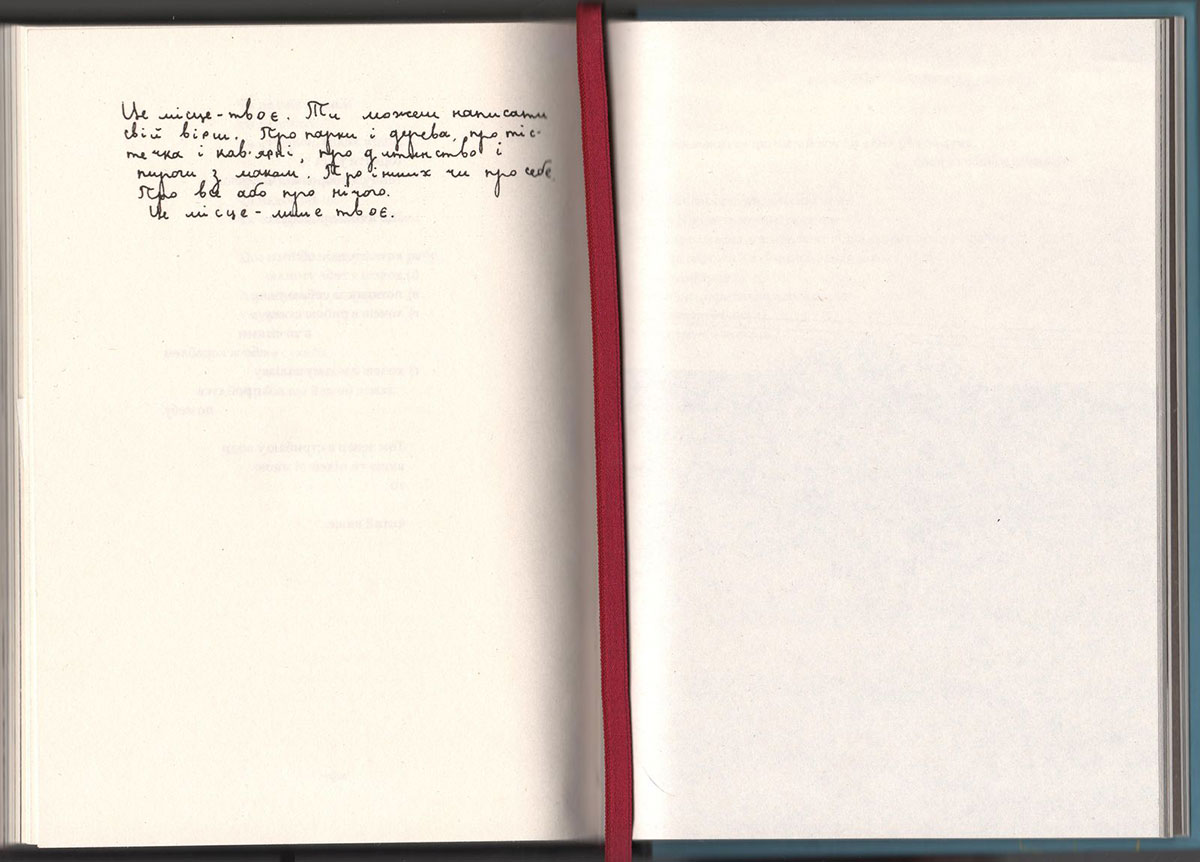 Це місце - твоє. Ти можеш написати
свій вірш. Про парки і дерева, про міс-
течка і кав'ярні, про дитинство і
пироги з маком. Про інших чи про себе.
Про все або про нічого.
Це місце - лише твоє.